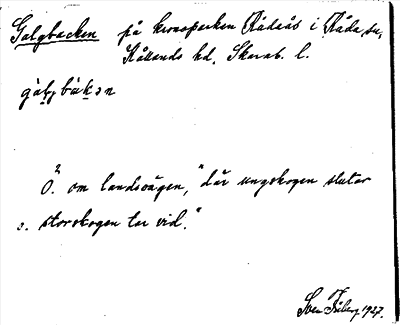 Galgbacken på kronoparken Rådaås i Råda sn,
Kållands hd, Skarab. l.
gàl̥jbàk̥ən
Ö. om landsvägen, "där ungskogen slutar
o. storskogen tar vid."
Sven 1927.